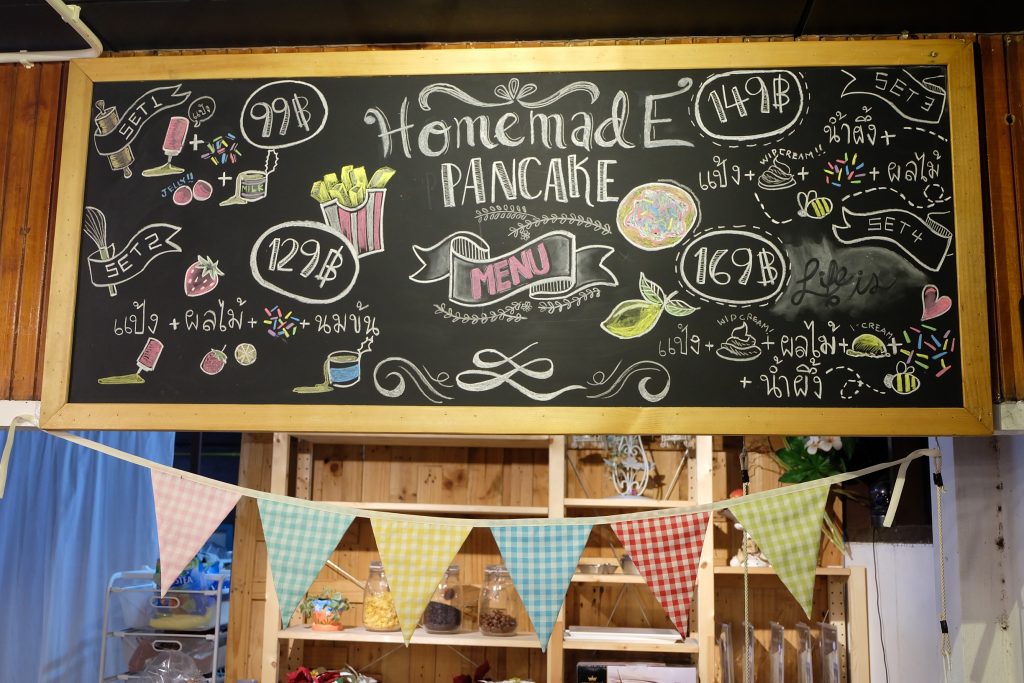 HomemadE
PANCAKE
MENU
SET 1
แป้ง
99฿
+
+
+
JELLY!!
MILK
SET 2
129฿
แป้ง + ผลไม้ + + นมข้น
149฿
SET 3
น้ำผึ้ง
WIPCREAM!!
แป้ง + + + ผลไม้
169฿
SET 4
Life is
WIPCREAM!
I-CREAM
แป้ง + + ผลไม้ + +
+ น้ำผึ้ง